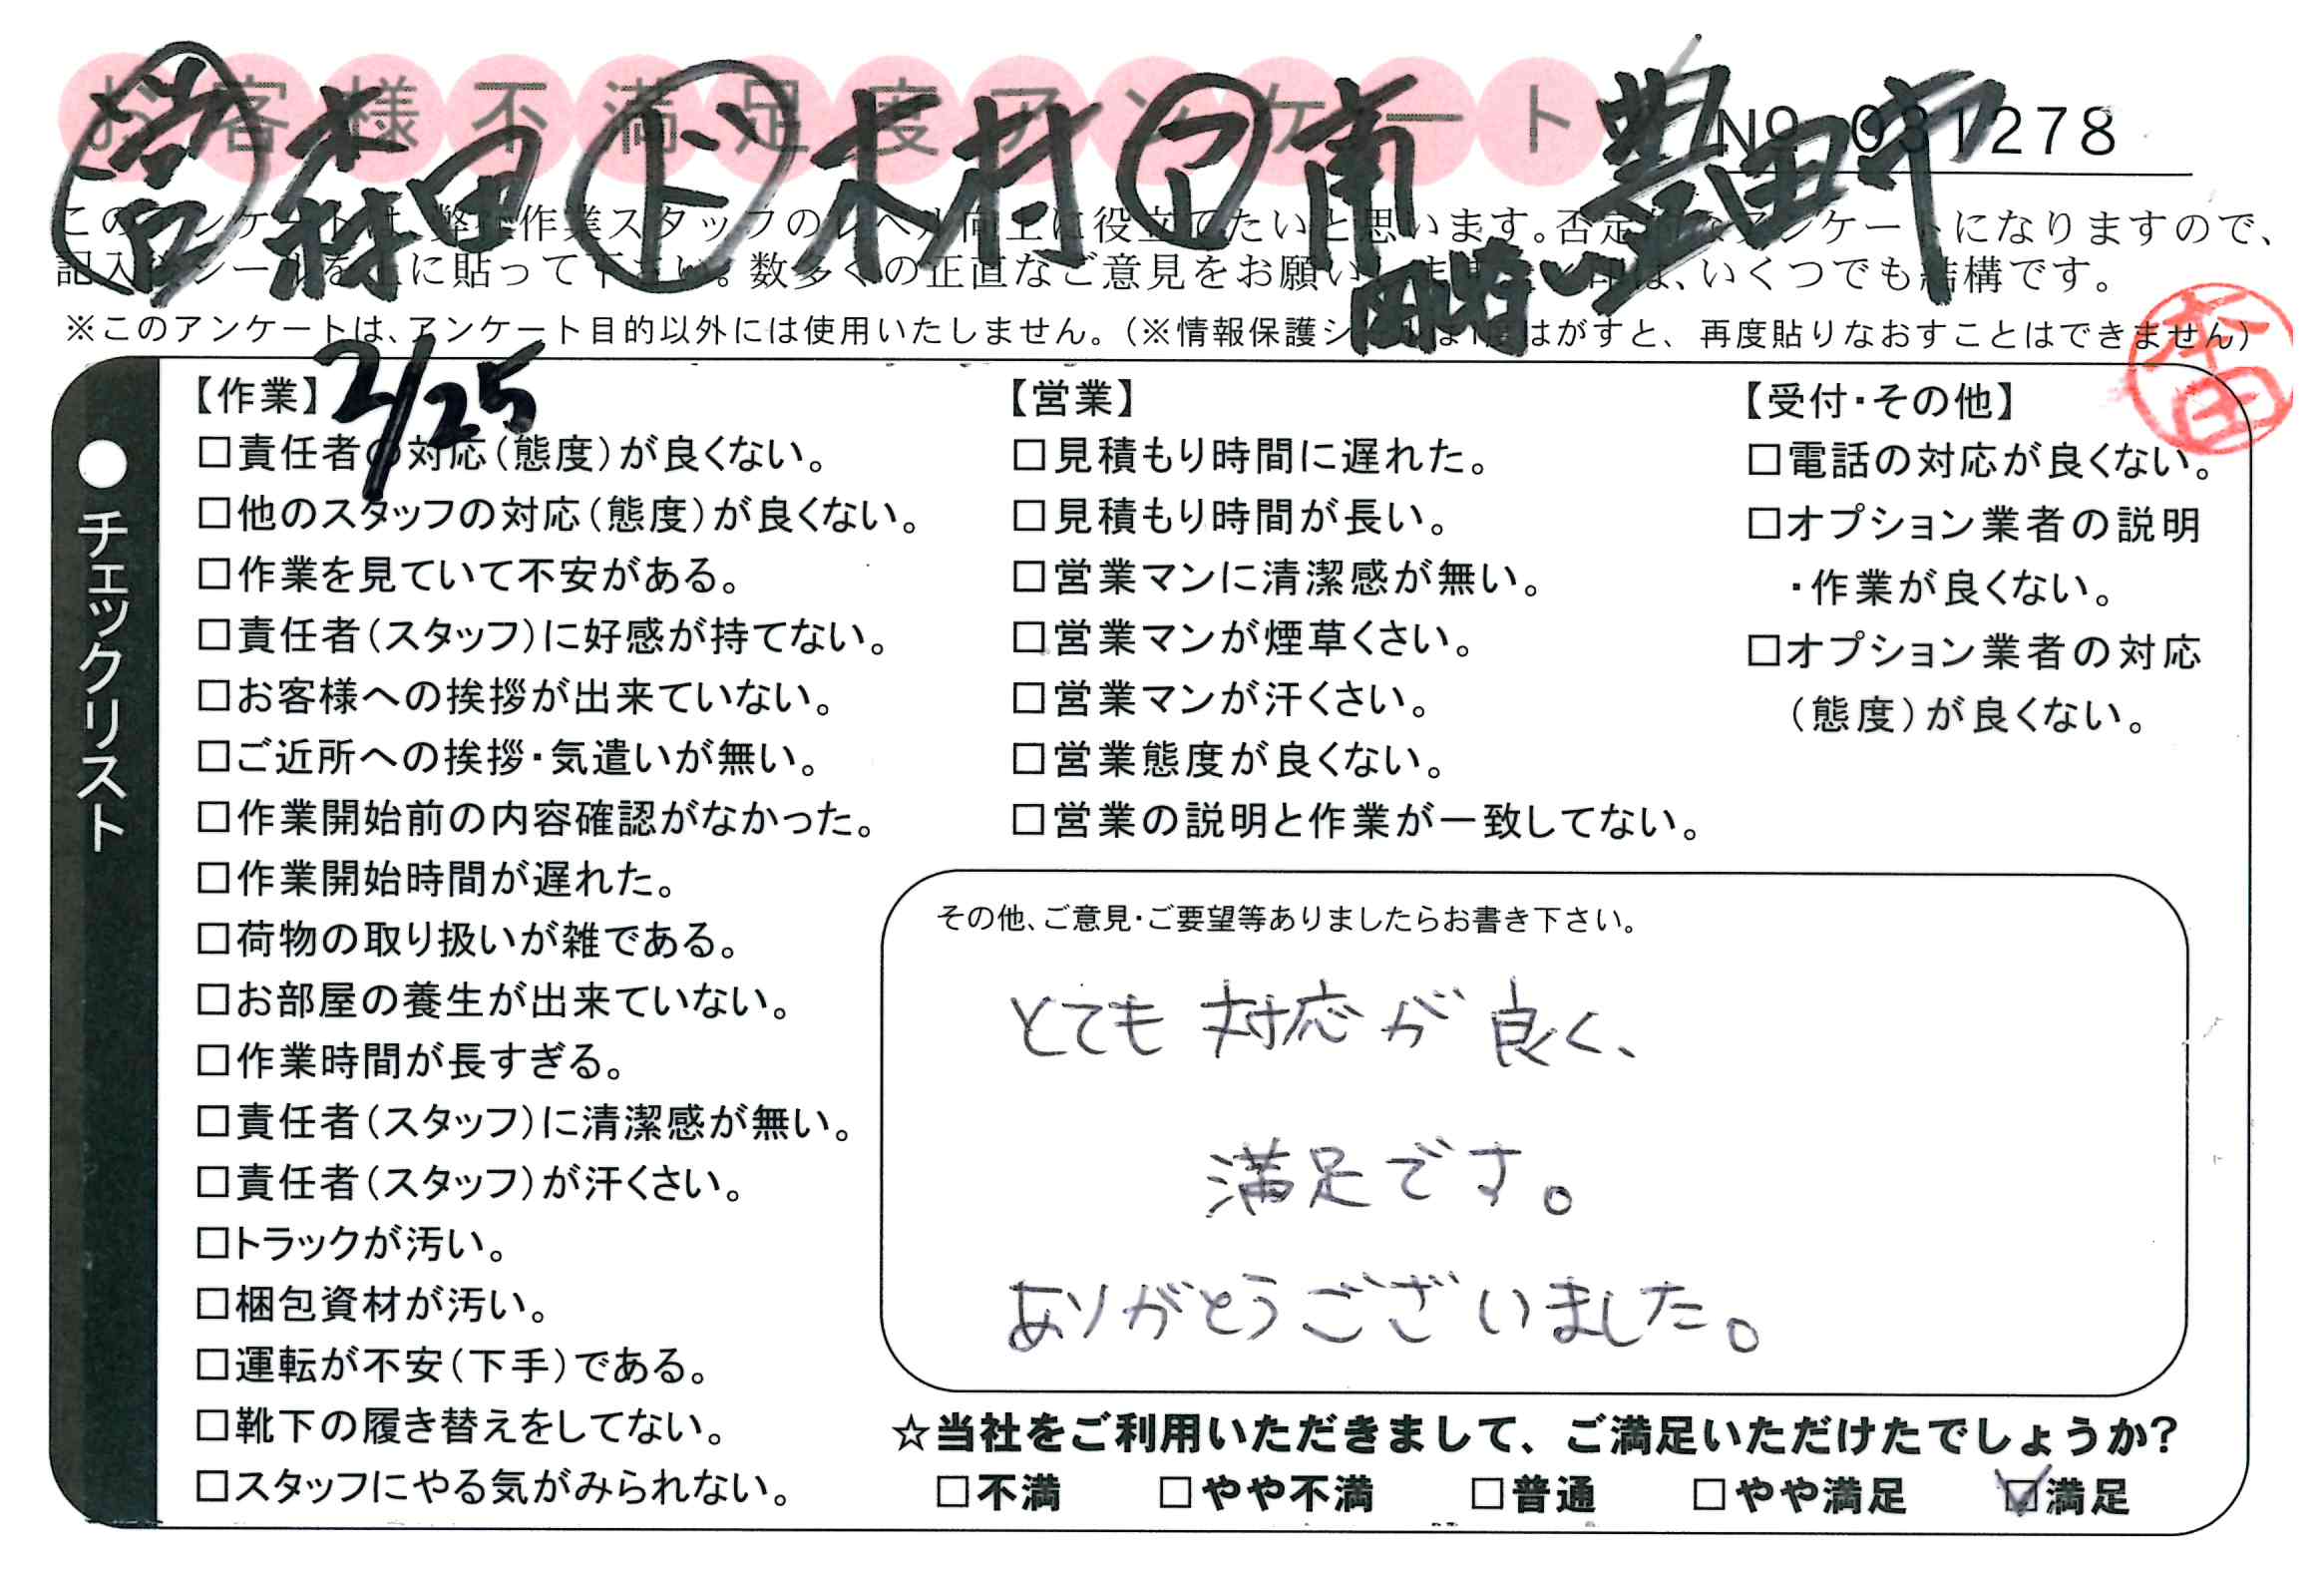 お客様不満足度アンケート
㊂森田 ㋣木村 ㋐南
岡崎→豊田市
No 031278
このアンケートは、弊社作業スタッフのレベル向上に役立てたいと思います。否定的なアンケートになりますので、
記入後シールを上に貼って下さい。数多くの正直なご意見をお願いします。 は、いくつでも結構です。
※このアンケートは、アンケート目的以外には使用いたしません。（※情報保護シールは1度はがすと、再度貼りなおすことはできません）
本田
2/25
●チェックリスト
【作業】
□責任者の対応（態度）が良くない。
□他のスタッフの対応（態度）が良くない。
□作業を見ていて不安がある。
□責任者（スタッフ）に好感が持てない。
□お客様への挨拶が出来ていない。
□ご近所への挨拶・気遣いが無い。
□作業開始前の内容確認がなかった。
□作業開始時間が遅れた。
□荷物の取り扱いが雑である。
□お部屋の養生が出来ていない。
□作業時間が長すぎる。
□責任者（スタッフ）に清潔感が無い。
□責任者（スタッフ）が汗くさい。
□トラックが汚い。
□梱包資材が汚い。
□運転が不安（下手）である。
□靴下の履き替えをしてない。
□スタッフにやる気がみられない。
【営業】
□見積もり時間に遅れた。
□見積もり時間が長い。
□営業マンに清潔感が無い。
□営業マンが煙草くさい。
□営業マンが汗くさい。
□営業態度が良くない。
□営業の説明と作業が一致してない。
【受付・その他】
□電話の対応が良くない。
□オプション業者の説明
・作業が良くない。
□オプション業者の対応
（態度）が良くない。
その他、ご意見・ご要望等ありましたらお書き下さい。
とても 対応が 良く、
満足です。
ありがとうございました。
☆当社をご利用いただきまして、ご満足いただけたでしょうか？
□不満 □やや不満 □普通 □やや満足 ☑満足